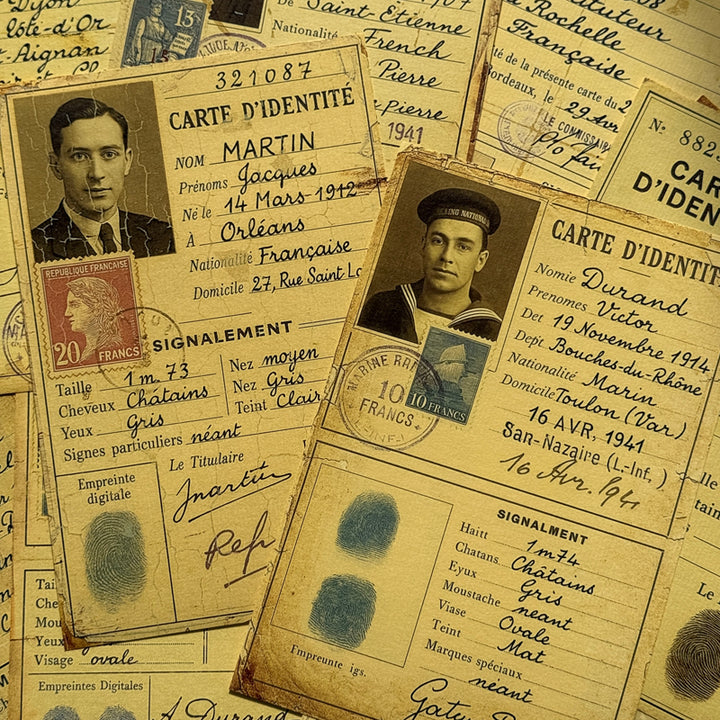 Dijon
Côte-d'Or
St-Aignan
13F
Saint-Etienne
Nationalité French
Pierre
Pierre
1941
Instituteur
La Rochelle
Française
té de la présente carte du 2
Bordeaux, le 29 Avr
LE COMMISSAIRE
N° 882
CAR
D'IDEN
321087
CARTE D'IDENTITÉ
NOM MARTIN
Prénoms Jacques
Né le 14 Mars 1912
A Orléans
Nationalité Française
Domicile 27, Rue Saint Lo
REPUBLIQUE FRANÇAISE
20 FRANCS
SIGNALEMENT
Taille 1 m. 73
Cheveux Châtains
Yeux Gris
Signes particuliers néant
Nez moyen
Nez Gris
Teint Clair
Empreinte
digitale
Le Titulaire
Jmartin
Ref
CARTE D'IDENTIT
Nomie Durand
Prenomes Victor
Det 19 Novembre 1914
Dept Bouches-du-Rhône
Nationalité Marin
Domicile Toulon (Var)
16 AVR, 1941
San-Nazaire (L-Inf, )
16 Avr. 194
10 FRANCS
10
FRANCS
SIGNALMENT
Haitt 1m74
Chatans Châtains
Eyux Gris
Moustache neant
Viase Ovale
Teint Mat
Marques spéciaux
néant
Empreunte igs.
Tai
Che
Mou
Yeux
Visage ovale
Empreintes Digitales
A Durand
Le